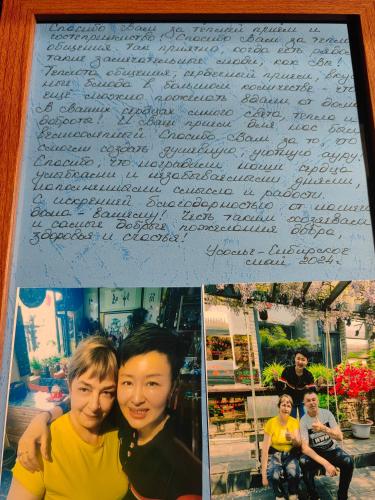 Спасибо Вам за тёплый приём и
гостеприимство! Спасибо Вам за теплоту
общения. Так приятно, когда есть рядом
такие замечательные люди, как Вы!
Теплота общения, сердечный приём, вкус-
ные блюда в большом количестве что
ещё можно пожелать вдали от дома
В ваших сердцах много света, тепла и
доброты! И Ваш приём для нас был
великолепен! Спасибо Вам за то, что
смогли создать душевную, уютную ауру!
Спасибо, что наполнили наши сердца
улыбками и незабываемыми днями,
наполненными смысла и радости.
С искренней благодарностью от нашего
дома - вашему! Честь таким хозяевам
и самые добрые пожелания добра,
здоровья и счастья!
Усолье-Сибирское
май 2024г